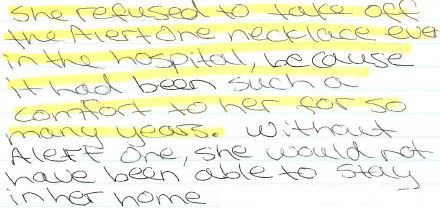 she refused to take off
the AlertOne necklace ever
in the hospital, because
it had been such a
comfort to her for so
many years. Without
Alert One, she would not
have been able to stay
in her home